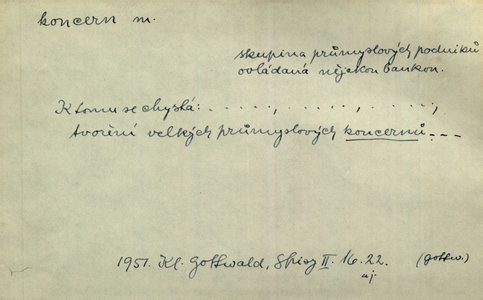 koncern m.
skupina průmyslových podniků
ovládaná nějakou bankou.
K tomu se chystá: . . . . ., . . . . ., . . . . .,
tvoření velkých průmyslových koncernů. - - -
1951. Kl. Gottwald, Spisy II. 16.22. (Gottw.)
aj.